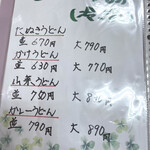 たぬきうどん
並 670円 大 790円
かけうどん
並 630円 大 770円
山菜うどん
並 780円 大 8
カレーうどん
並 790円 大 890円